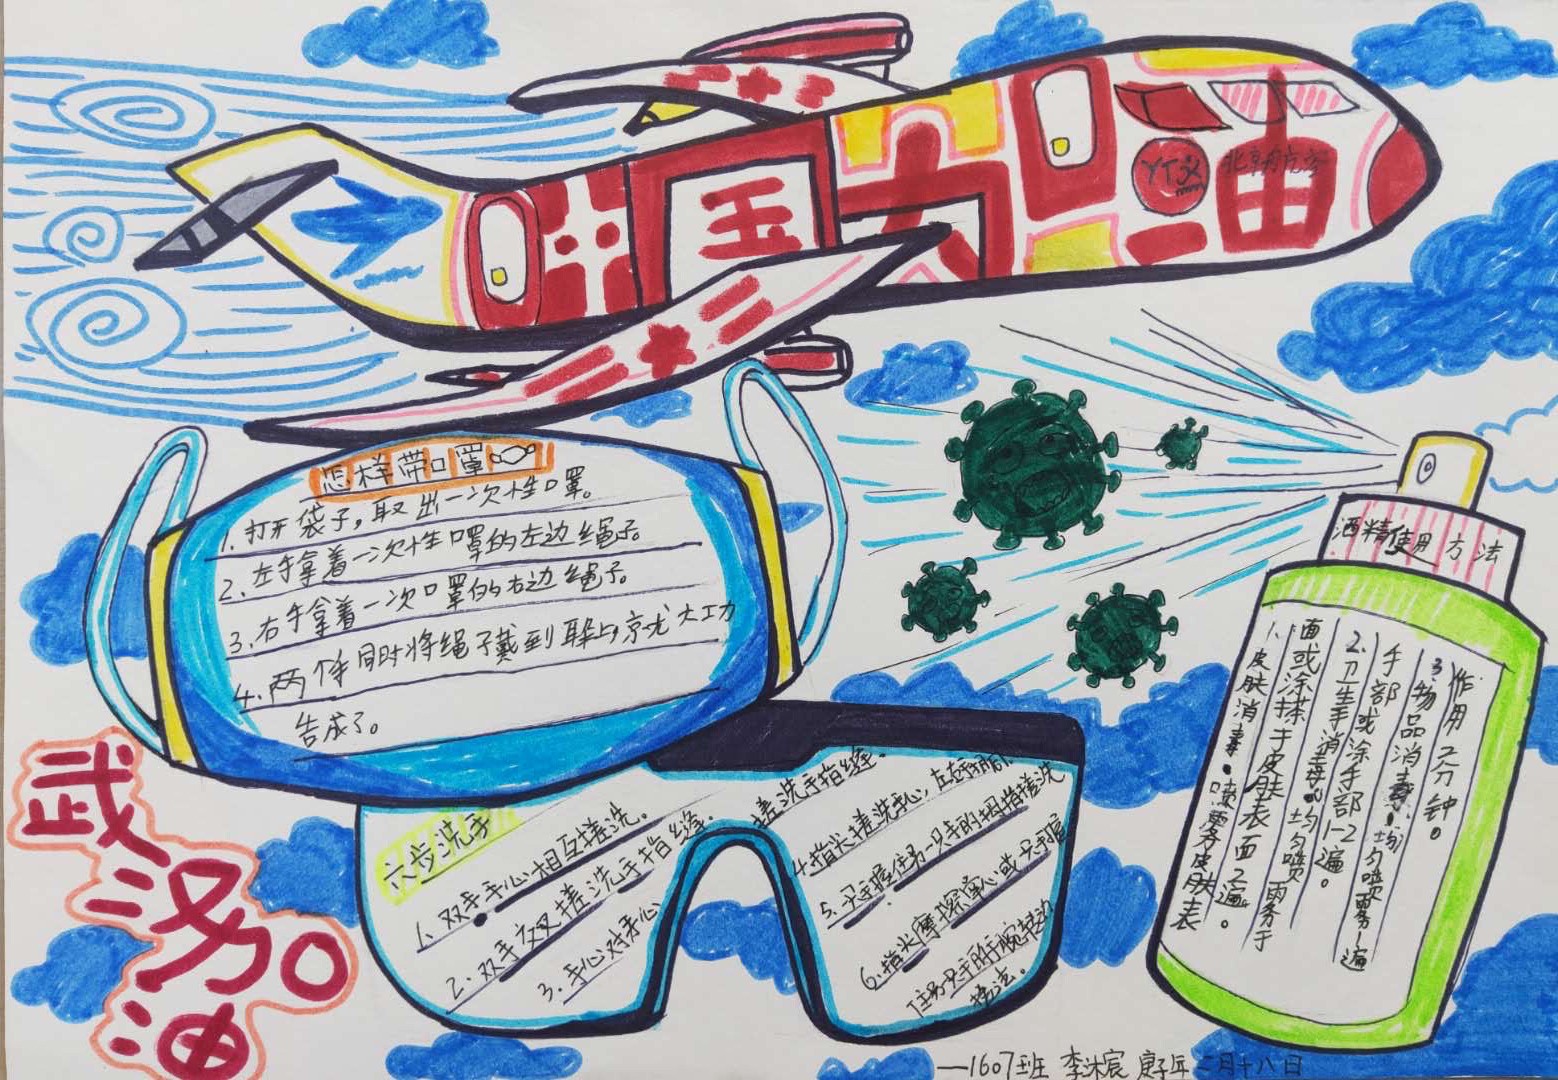 中国加油
YTX
北京航空
怎样带口罩
1.打开袋子，取出一次性口罩。
2.左手拿着一次性口罩的左边绳子。
3.右手拿着一次口罩的右边绳子。
4.两个手同时将绳子戴到耳朵上，就大工力
告成了。
武汉加油
六步洗手
1.双手手心相互搓洗。
2.双手交叉搓洗手指缝。
3.手心对手心
搓洗手指缝。
4.指尖搓洗手心，左右手相同
5.一只手握住另一只手的拇指搓洗
6.指尖摩擦掌心或一只手握
住另一只手的手腕转动
搓法。
酒精使用方法
1.皮肤消毒。喷雾皮肤表
面或涂抹于皮肤表面2遍。
2.卫生手消毒，均匀喷雾于
手部或涂手部1-2遍。
3.物品消毒，均匀喷雾1遍
作用2分钟。
——1607班 李沐宸 庚子年二月十八日